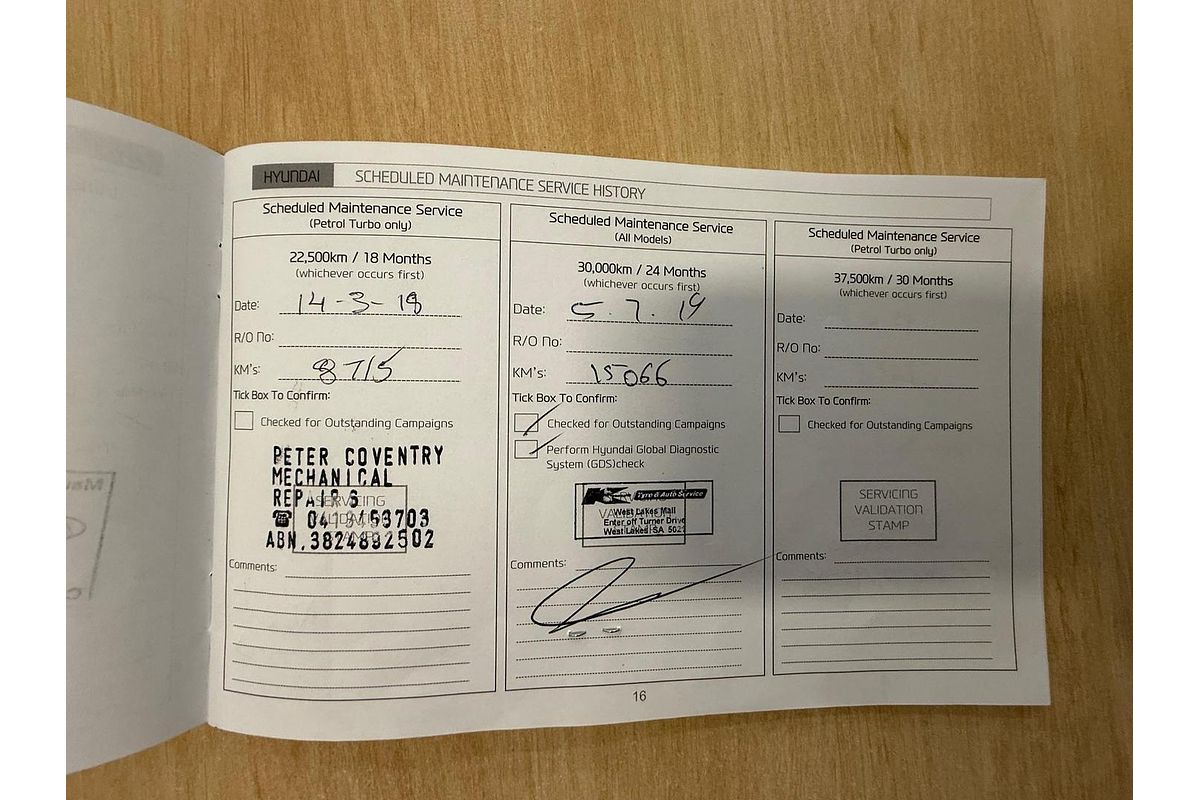 HYUNDAI SCHEDULED MAINTENANCE SERVICE HISTORY
Scheduled Maintenance Service
(Petrol Turbo only)
22,500km / 18 Months
(whichever occurs first)
Date: 14-3-18
R/O No:
KM's: 8715
Tick Box To Confirm:
Checked for Outstanding Campaigns
PETER COVENTRY
MECHANICAL
REPAIRS
SERVICING
VALIDATION
STAMP
ABN.3824892502
Comments:
Scheduled Maintenance Service
(All Models)
30,000km / 24 Months
(whichever occurs first)
Date: 5.7.19
R/O No:
KM's: 15066
Tick Box To Confirm:
Checked for Outstanding Campaigns
Perform Hyundai Global Diagnostic
System (GDS)check
Tyre & Auto Service
SERVICING
VALIDATION
STAMP
West Lakes Mall
Enter off Turner Drive
West Lakes SA 5021
Comments:
Scheduled Maintenance Service
(Petrol Turbo only)
37,500km / 30 Months
(whichever occurs first)
Date:
R/O No:
KM's:
Tick Box To Confirm:
Checked for Outstanding Campaigns
SERVICING
VALIDATION
STAMP
Comments:
16